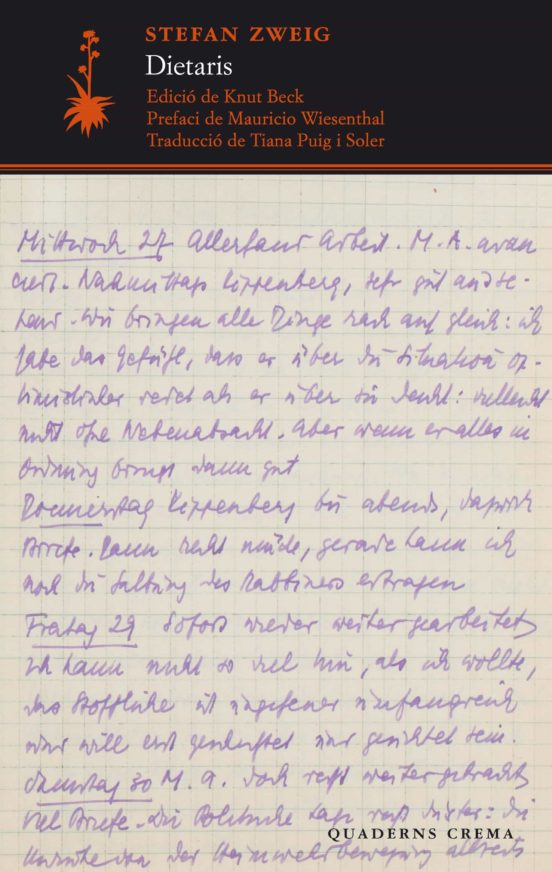 STEFAN ZWEIG
Dietaris
Edició de Knut Beck
Prefaci de Mauricio Wiesenthal
Traducció de Tiana Puig i Soler
Mittwoch 27 Allerhand Arbeit. M. A. avan
ciert. Nachmittags Kippenberg, sehr gut
Wir bringen alle Dinge rasch auf gleich: ich
habe das Gefühl, dass er über die Situation op-
timistischer redet als er über sie denkt: vielleicht
nicht ohne Nebenabsicht. Aber wenn er alles in
Ordnung bringt dann gut
Donnerstag Kippenberg bis abends, dazwisch
Briefe. Dann recht müde, gerade kann ich
noch die des Rabbiners ertragen
Freitag 29 Sofort wieder weiter gearbeitet
Ich kann nicht so viel thun, als ich wollte,
das Stoffliche ist ungeheuer umfangreich
und will erst und gesichtet sein.
Samstag 30 M. A. doch recht weitergebracht
Viel Briefe. Die Politische Lage recht düster: die
von der Heimwehrbewegung
QUADERNS CREMA